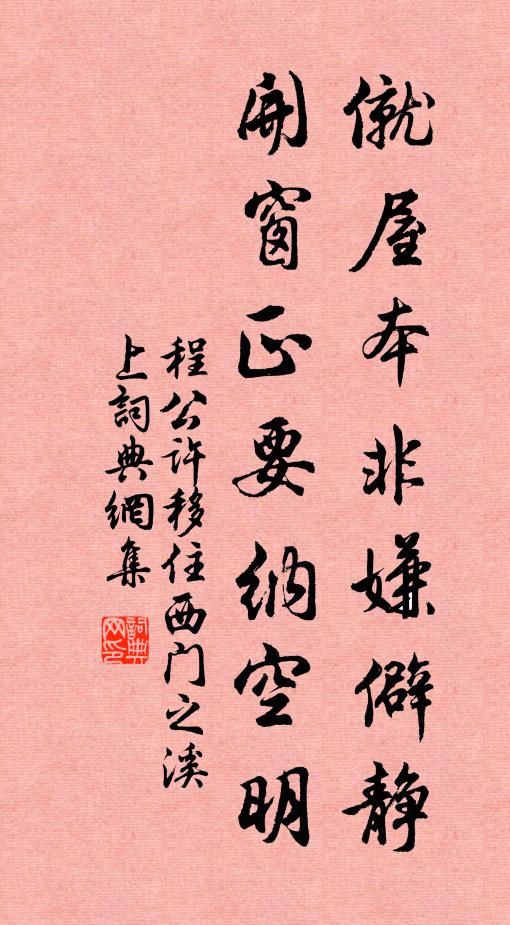 僦屋本非嫌僻静
開窗正要納空明
程公許移住西门之溪
上詞典網集
詞典网印